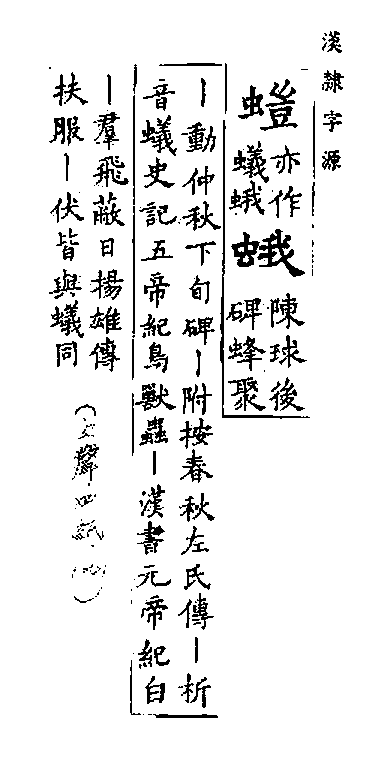 漢隸字源
螘亦作蟻蛾蛾陳球後碑蜂聚
丨動仲秋下旬碑丨附按春秋左氏傳丨析
音蟻史記五帝紀鳥獸蟲丨漢書元帝紀白
丨羣飛蔽日揚雄傳
扶服丨伏皆與蟻同
(上聲·四紙